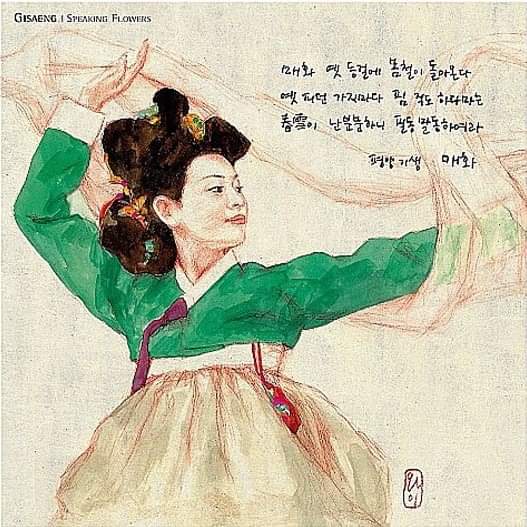 GISAENG | SPEAKING FLOWERS
매화 옛 등걸에 봄철이 돌아온다
옛 피던 가지마다 핌 적도 하다마는
春雪이 난분분하니 필동 말동하여라
평양기생 매화